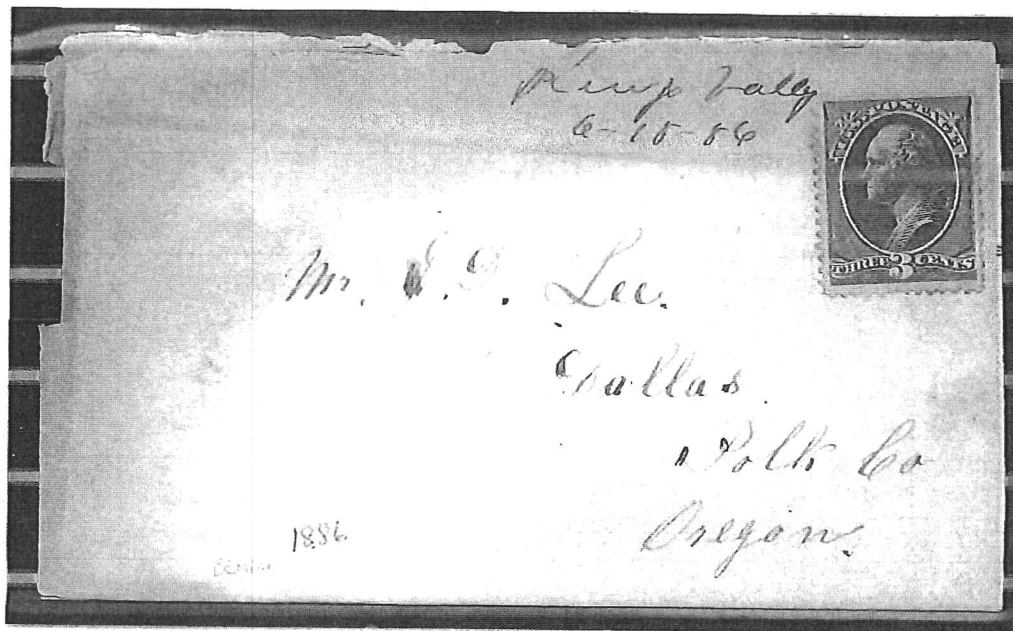 Kings Vally
6-18-86
U.S. POSTAGE
THREE 3 CENTS
Mr. E. D. Lee.
Dallas
Polk Co
Oregon.
1886